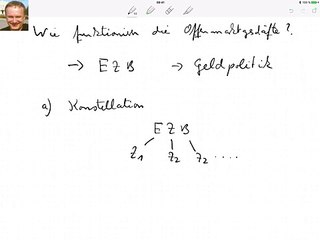 Wie funktionieren die Offenmarktgeschäfte?
→ EZB → Geldpolitik
a) Konstellation
EZB
Z1 Z2 Z2 ....